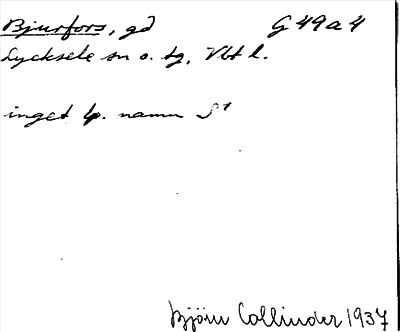 Bjurfors, gd G 49 a 4
Lycksele sn o. tg, Vbt l.
inget lp. namn S¹
Björn Collinder 1937